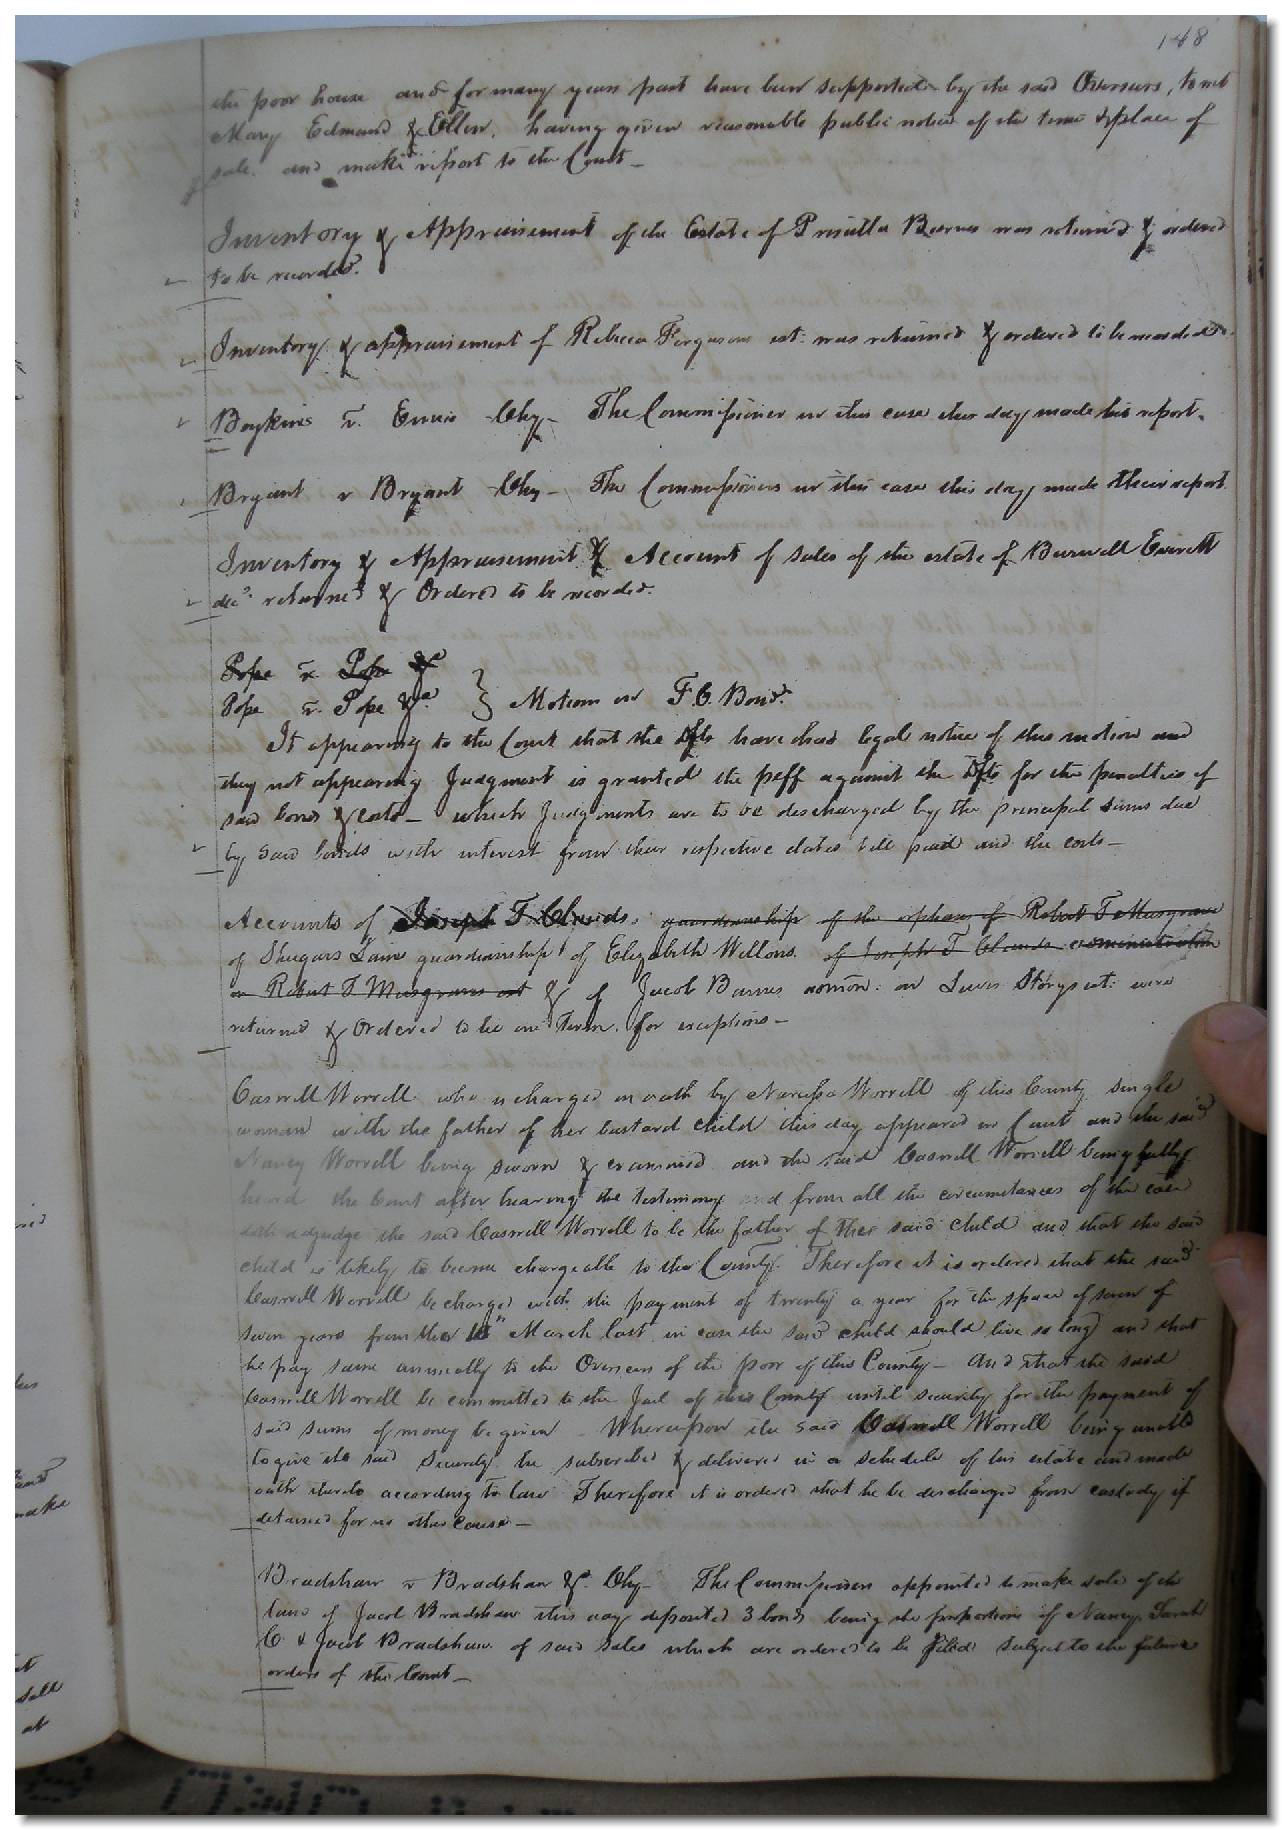 148
the poor house and for many years past have been supported by the said Overseers, to wit
Mary Edmund & Ellen, having given reasonable public notice of the time & place of
sale. and make report to the Court –
Inventory & Appraisement of the Estate of Priscilla Barnes was returned & ordered
to be recorded.
Inventory & appraisement of Rebecca Ferguson est: was returned & ordered to be recorded.
Boykins v. Ennis Chy – The Commissioner in this case this day made his report.
Bryant v Bryant Chy – The Commissioners in this case this day made their report
Inventory & Appraisement & Account of sales of the estate of Burwell Everett
decd. returned & Ordered to be recorded.
Pope v. Pope &c
Pope v. Pope &a. } Motion on F. B. Bond.
It appearing to the Court that the Dfts have had legal notice of this motion and
they not appearing Judgment is granted the plff against the Dfts for the penalties of
said bonds & costs – which Judgments are to be discharged by the principal sums due
by said bonds with interest from their respective dates till paid and the costs –
Accounts of Joseph T. Clauds. guardianship of the orphans of Robert T Musgrave
of Shugars Lain guardianship of Elizabeth Willons. of Joseph T Clauds administration
on Robert T Musgraves est & of Jacob Barnes admon: on Lewis Storys est: were
returned & Ordered to lie one Term for exceptions –
Caswell Worrell who is charged on oath by Narcissa Worrell of this County single
woman with the father of her bastard child this day appeared in Court and the said
Nancy Worrell being sworn & examined and the said Caswell Worrell being fully
heard the Court after hearing the testimony and from all the circumstances of the case
doth adjudge the said Caswell Worrell to be the father of the said child and that the said
child is likely to become chargeable to the County. Therefore it is ordered that the said
Caswell Worrell be charged with the payment of twenty a year for the space of seven of
seven years from the March last in case the said child should live so long and that
he pay same annually to the Overseers of the poor of this County – And that the said
Caswell Worrell be committed to the Jail of this County until security for the payment of
said sums of money be given – Whereupon the said Caswell Worrell being unable
to give the said Security he subscribed & delivered in a schedule of his estate and made
oath thereto according to law Therefore it is ordered that he be discharged from custody if
detained for no other cause –
Bradshaw v Bradshaw &c. Chy – The Commissioners appointed to make sale of the
land of Jacob Bradshaw this day deposited 3 bonds being the proportions of Nancy, Sarah
C & Jacob Bradshaw of said sales which are ordered to be filed subject to the future
orders of the Court –